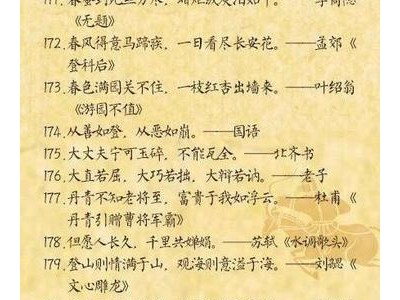 《无题》
172.春风得意马蹄疾，一日看尽长安花。——孟郊《
登科后》
173.春色满园关不住，一枝红杏出墙来。——叶绍翁
《游园不值》
174.从善如登，从恶如崩。——国语
175.大丈夫宁可玉碎，不能瓦全。——北齐书
176.大直若屈，大巧若拙，大辩若讷。——老子
177.丹青不知老将至，富贵于我如浮云。——杜甫《
丹青引赠曹将军霸》
178.但愿人长久，千里共婵娟。——苏轼《水调歌头》
179.登山则情满于山，观海则意溢于海。——刘勰《
文心雕龙》